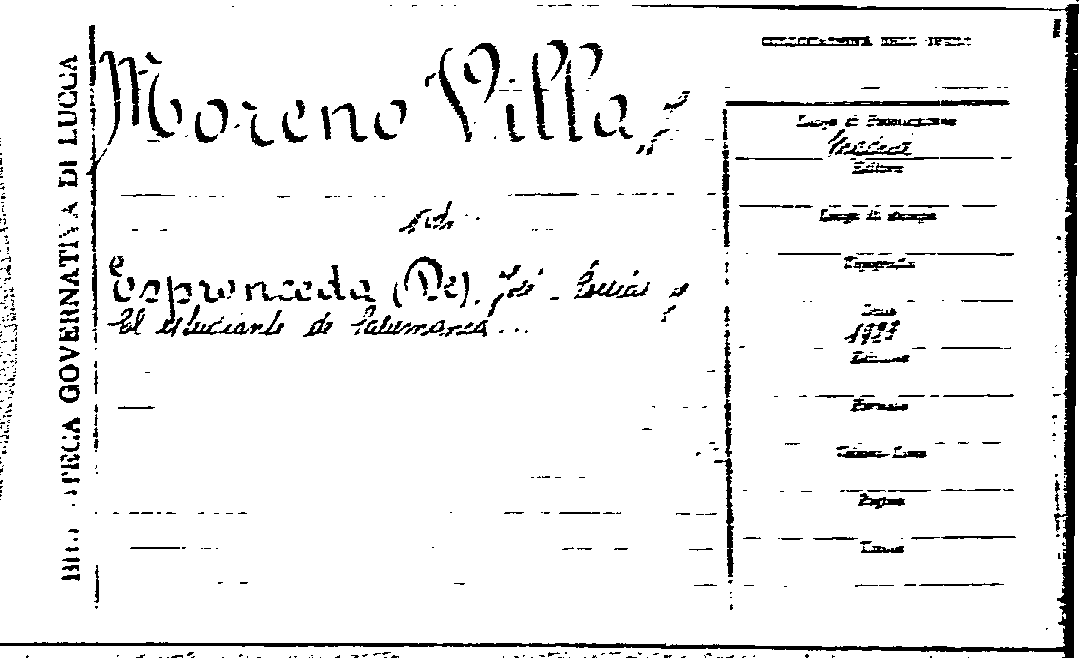 BIBLIOTECA GOVERNATIVA DI LUCCA
Moreno Villa, J.
Ved.
Espronceda (De), José - Poesías y
El estudiante de Salamanca ...
COLLOCAZIONE DELL'OPERA
Luogo di Pubblicazione
Madrid
Editore
Luogo di stampa
Tipografia
Data
1923
Edizione
Formato
Volumi
Pagine